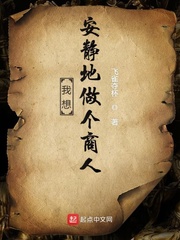 【我想】
安静地做个商人
飞雀夺杯 ◎ 著
起点中文网